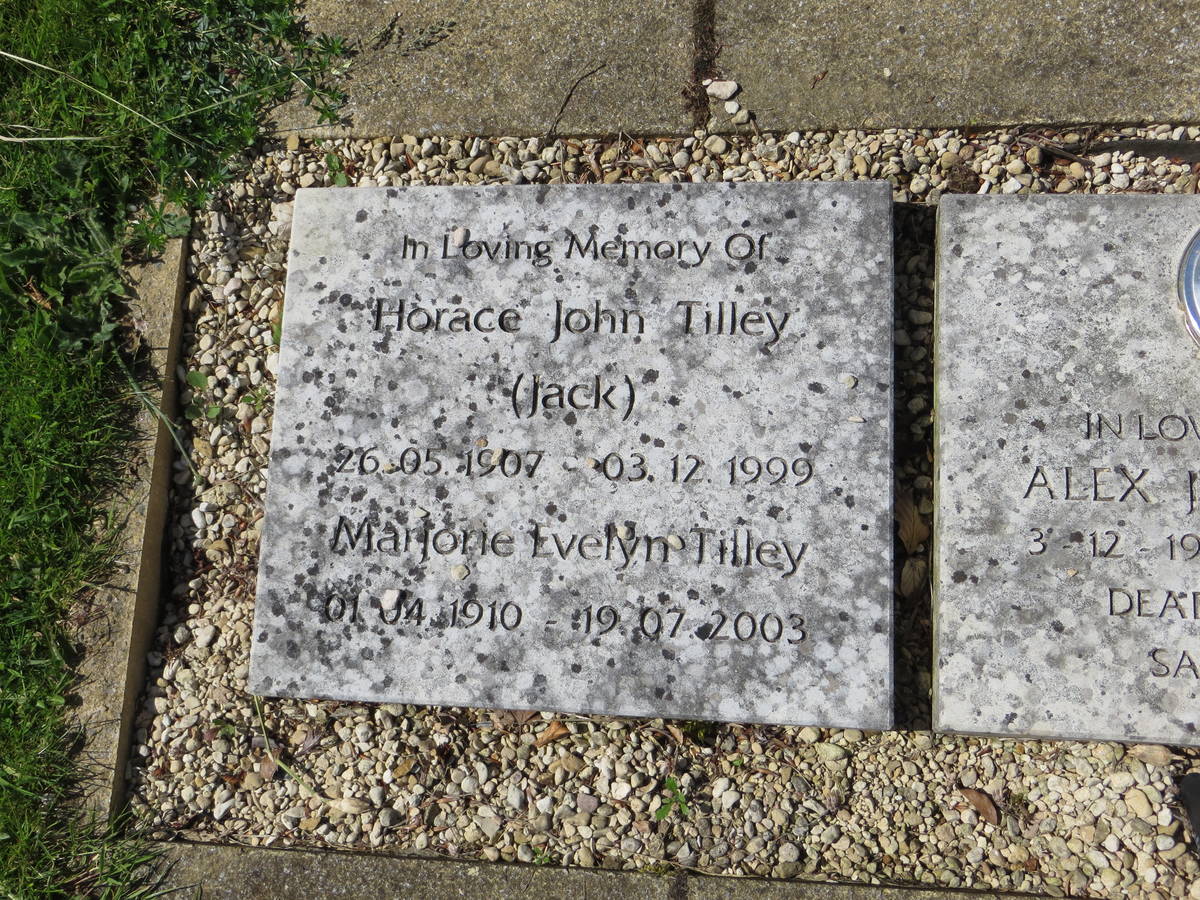 In Loving Memory Of
Horace John Tilley
(Jack)
26. 05. 1907 - 03. 12. 1999
Marjorie Evelyn Tilley
01. 04. 1910 - 19. 07. 2003
IN
ALEX
3 - 12 -